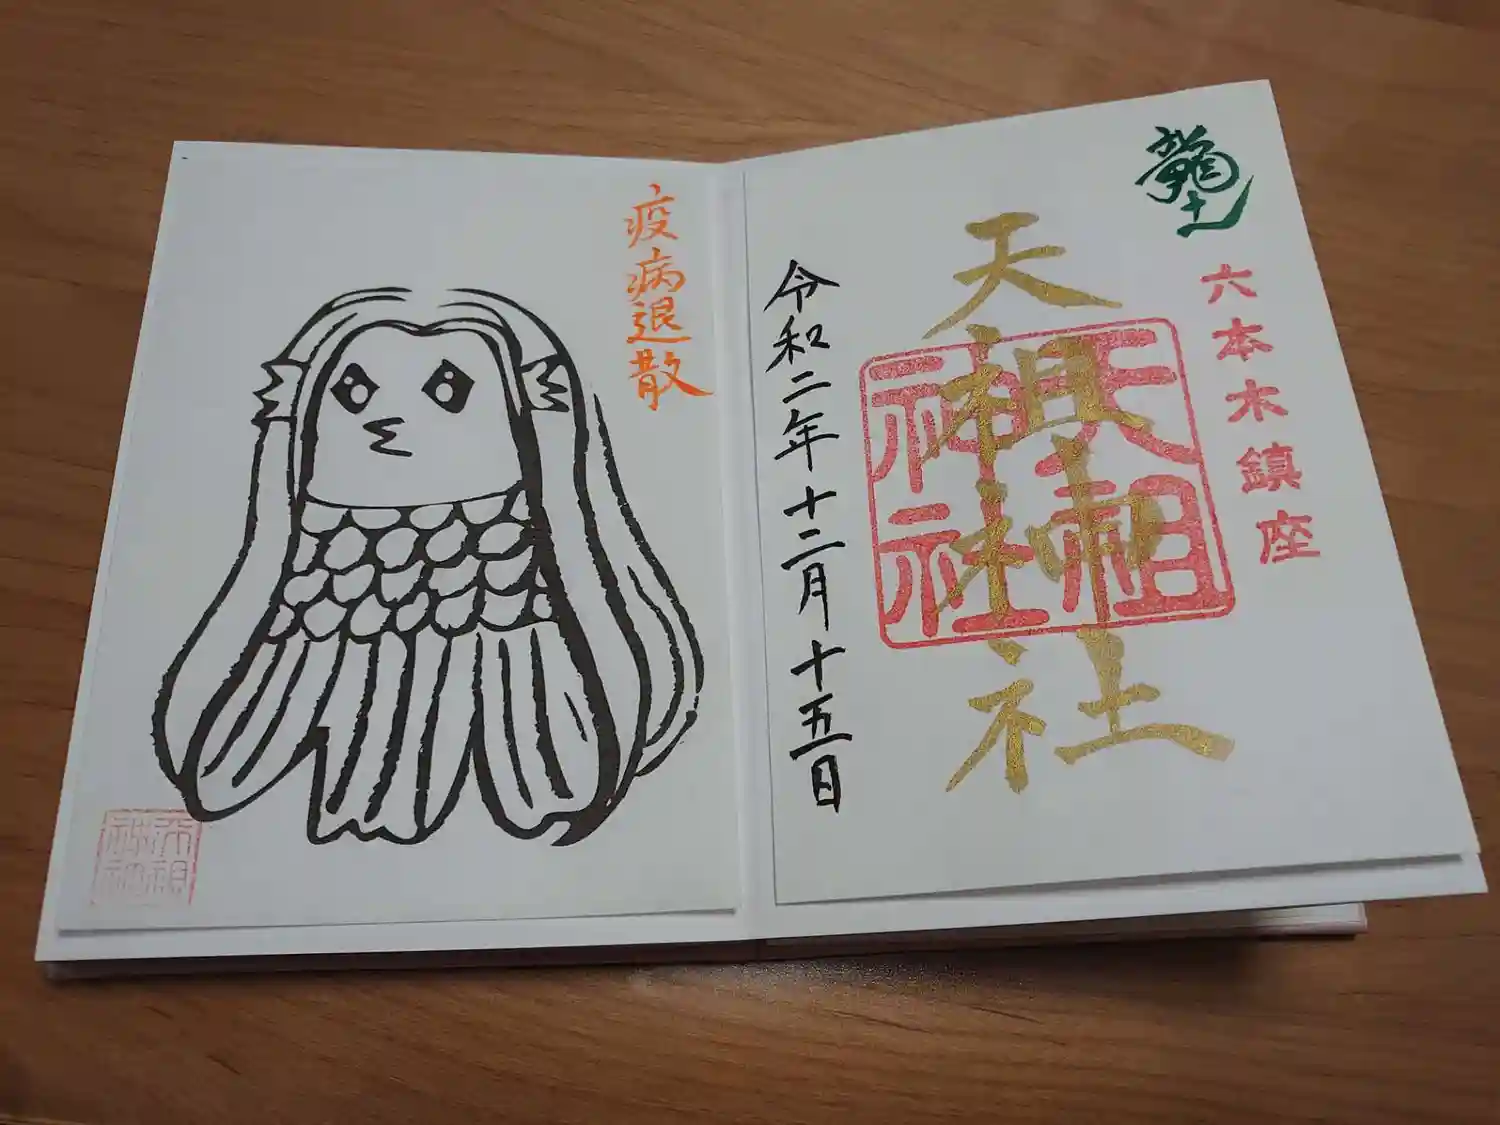 龍土
六本木鎮座
天祖神社
天祖神社
令和二年十二月十五日
疫病退散
天祖神社